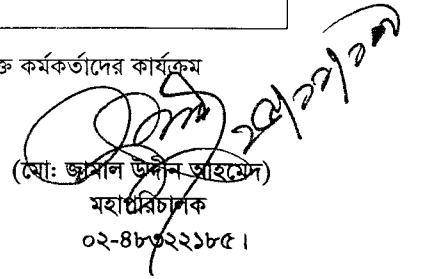 ক্ত কর্মকর্তাদের কার্যক্রম
(মো: জামাল উদ্দীন আহমেদ)
মহাপরিচালক
০২-৪৮৩২২১৮৫।